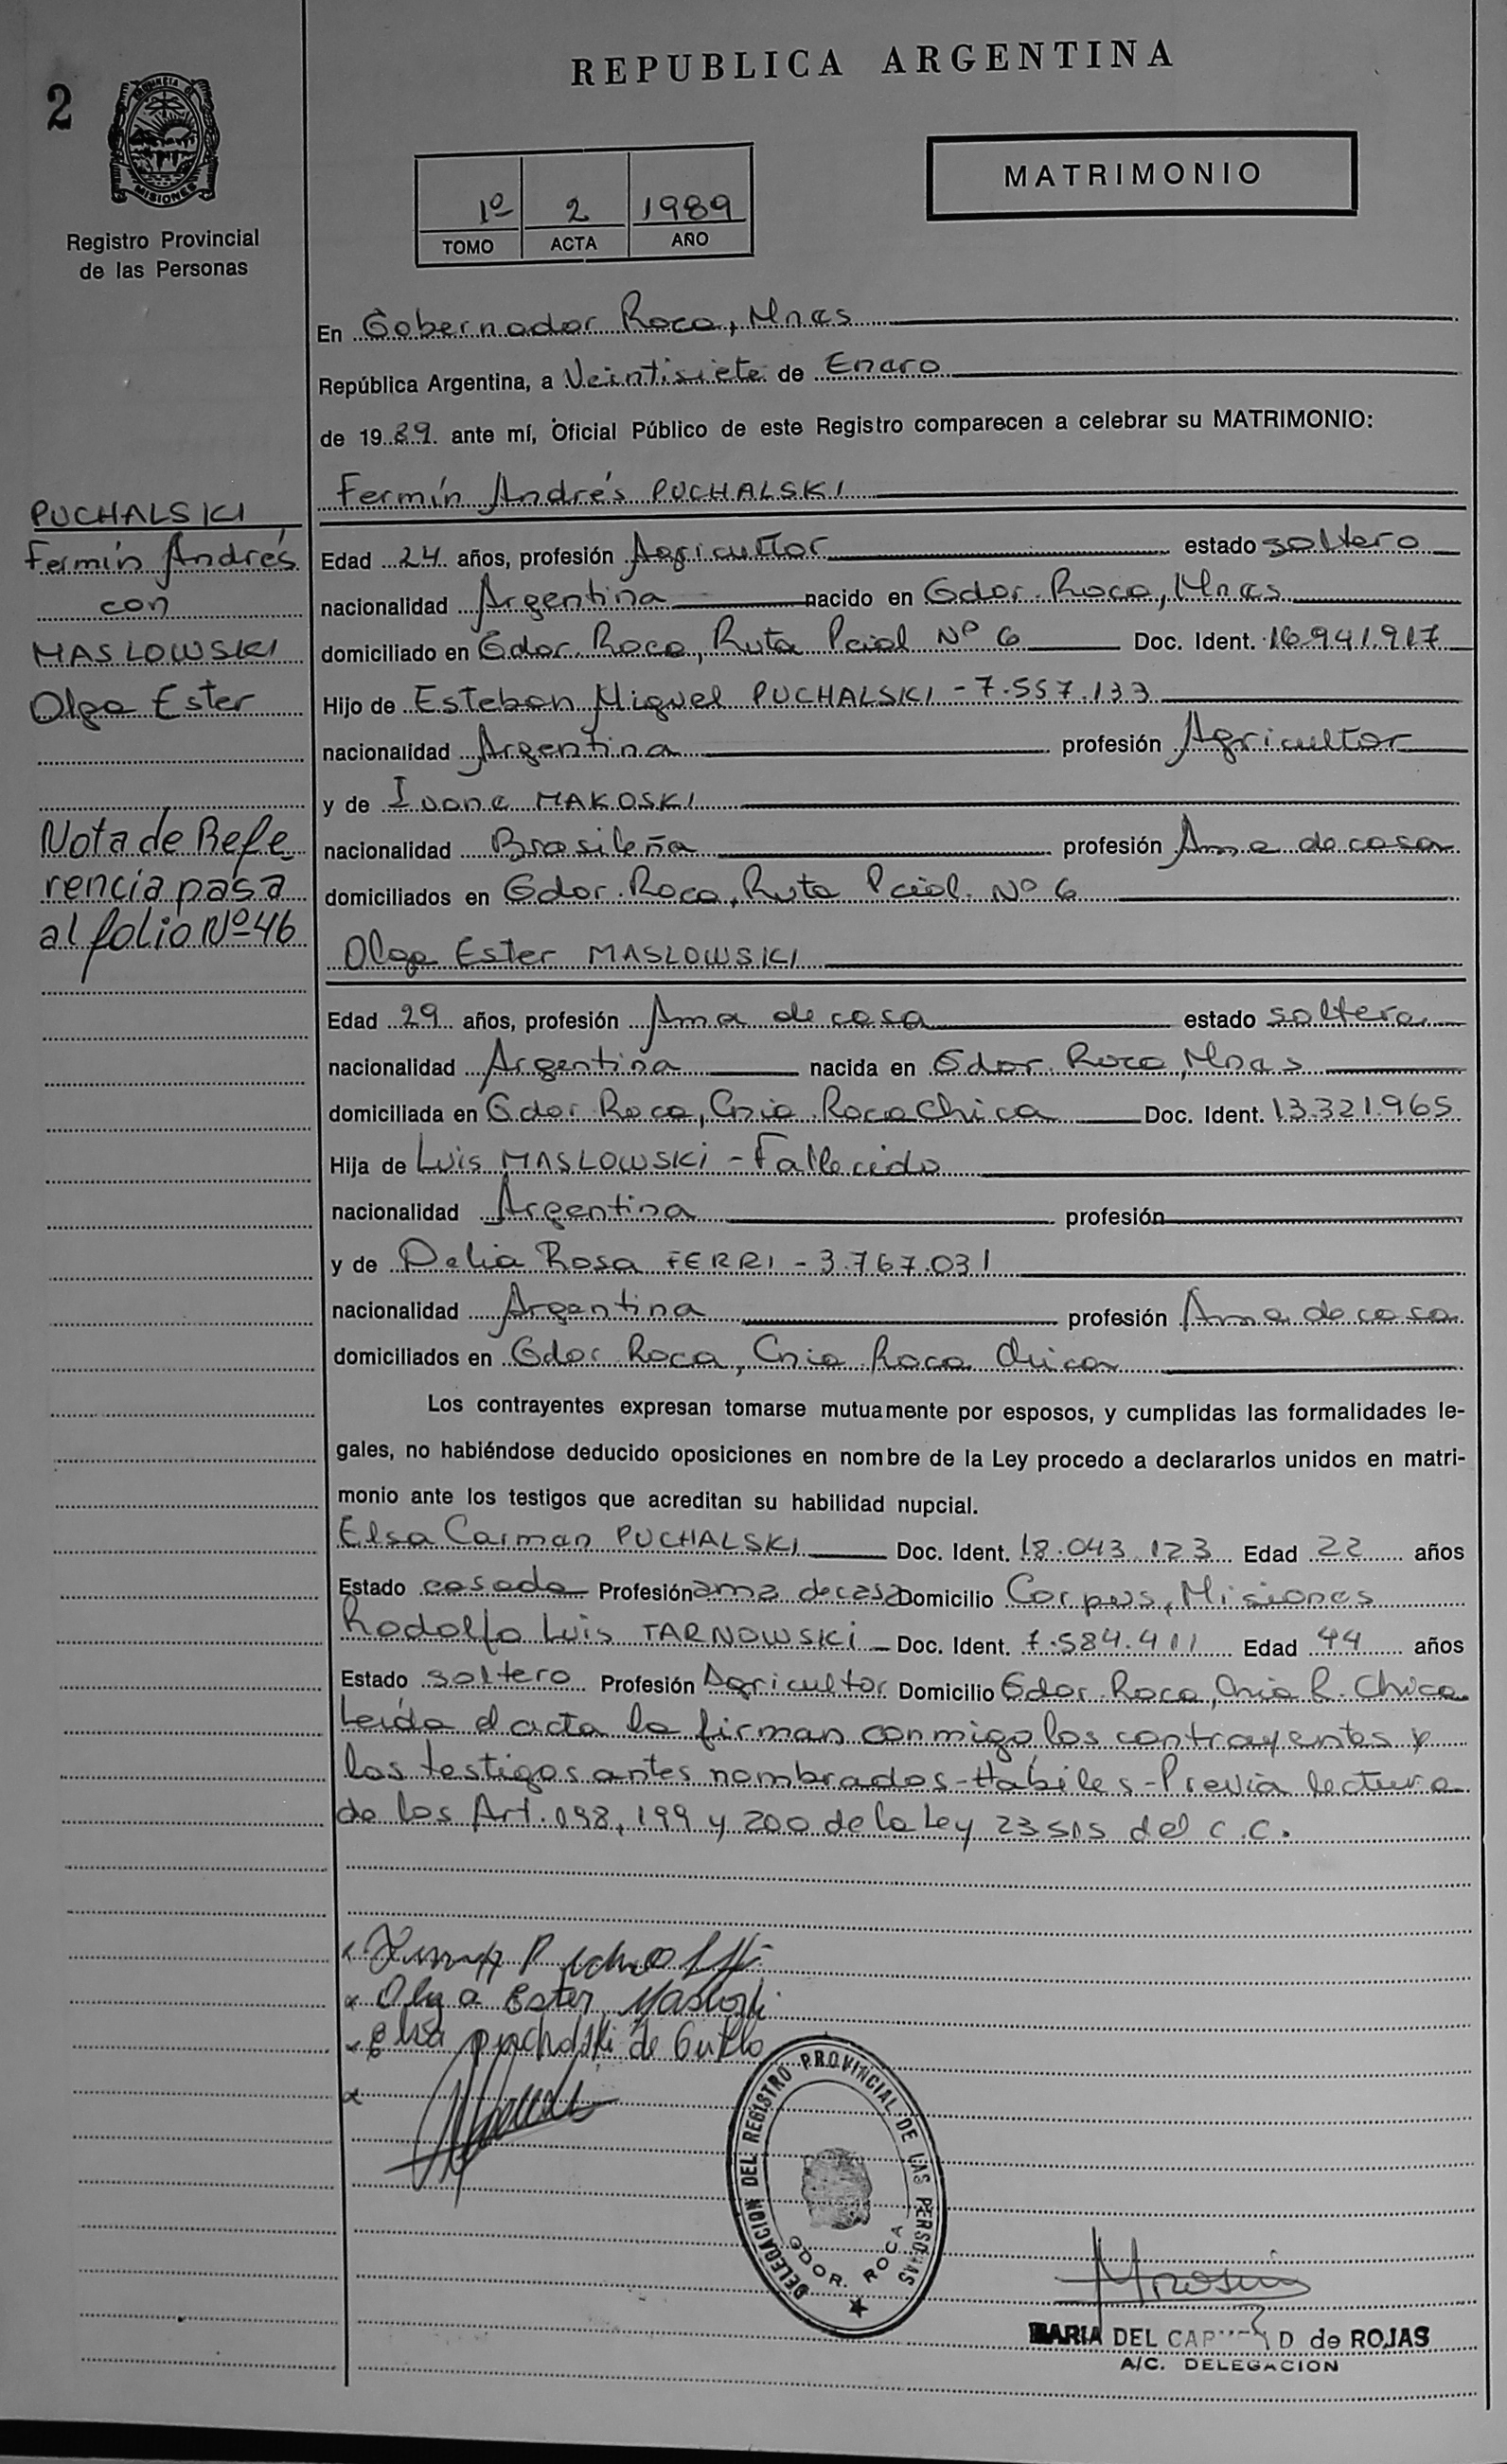 REPUBLICA ARGENTINA
2
PROVINCIA DE MISIONES
Registro Provincial
de las Personas
1º 2 1989
TOMO ACTA AÑO
MATRIMONIO
En Gobernador Roca, Mnes
República Argentina, a Veintisiete de Enero
de 1989 ante mí, Oficial Público de este Registro comparecen a celebrar su MATRIMONIO:
Fermín Andrés PUCHALSKI
PUCHALSKI
Fermín Andrés
con
MASLOWSKI
Olga Ester
Nota de Refe
rencia pasa
al folio Nº 46
Edad 24 años, profesión Agricultor estado soltero
nacionalidad Argentina nacido en Gdor. Roca, Mnes
domiciliado en Gdor. Roca, Ruta Pcial Nº 6 Doc. Ident. 16.941.917
Hijo de Esteban Miguel PUCHALSKI - 7.557.133
nacionalidad Argentina profesión Agricultor
y de Ivone MAKOSKI
nacionalidad Brasileña profesión Ama de casa
domiciliados en Gdor. Roca, Ruta Pcial. Nº 6
Olga Ester MASLOWSKI
Edad 29 años, profesión Ama de casa estado soltera
nacionalidad Argentina nacida en Gdor. Roca, Mnes
domiciliada en Gdor. Roca, Cnia. Roca Chica Doc. Ident. 13.321.965
Hija de Luis MASLOWSKI - Fallecido
nacionalidad Argentina profesión
y de Delia Rosa FERRI - 3.767.031
nacionalidad Argentina profesión Ama de casa
domiciliados en Gdor. Roca, Cnia. Roca Chica
Los contrayentes expresan tomarse mutuamente por esposos, y cumplidas las formalidades le-
gales, no habiéndose deducido oposiciones en nombre de la Ley procedo a declararlos unidos en matri-
monio ante los testigos que acreditan su habilidad nupcial.
Elsa Carmen PUCHALSKI Doc. Ident. 18.043.123 Edad 22 años
Estado casada Profesión ama de casa Domicilio Corpus, Misiones
Rodolfo Luis TARNOWSKI Doc. Ident. 7.584.411 Edad 44 años
Estado soltero Profesión Agricultor Domicilio Gdor. Roca, Cnia R. Chica
Leída el acta la firman conmigo los contrayentes y
los testigos antes nombrados - Hábiles - Previa lectura
de los Art. 198, 199 y 200 de la Ley 23515 del C.C.
Olga Ester Maslowski
Elsa puchalski de
DELEGACION DEL REGISTRO PROVINCIAL DE LAS PERSONAS
GDOR. ROCA
MARIA DEL D de ROJAS
A/C. DELEGACION